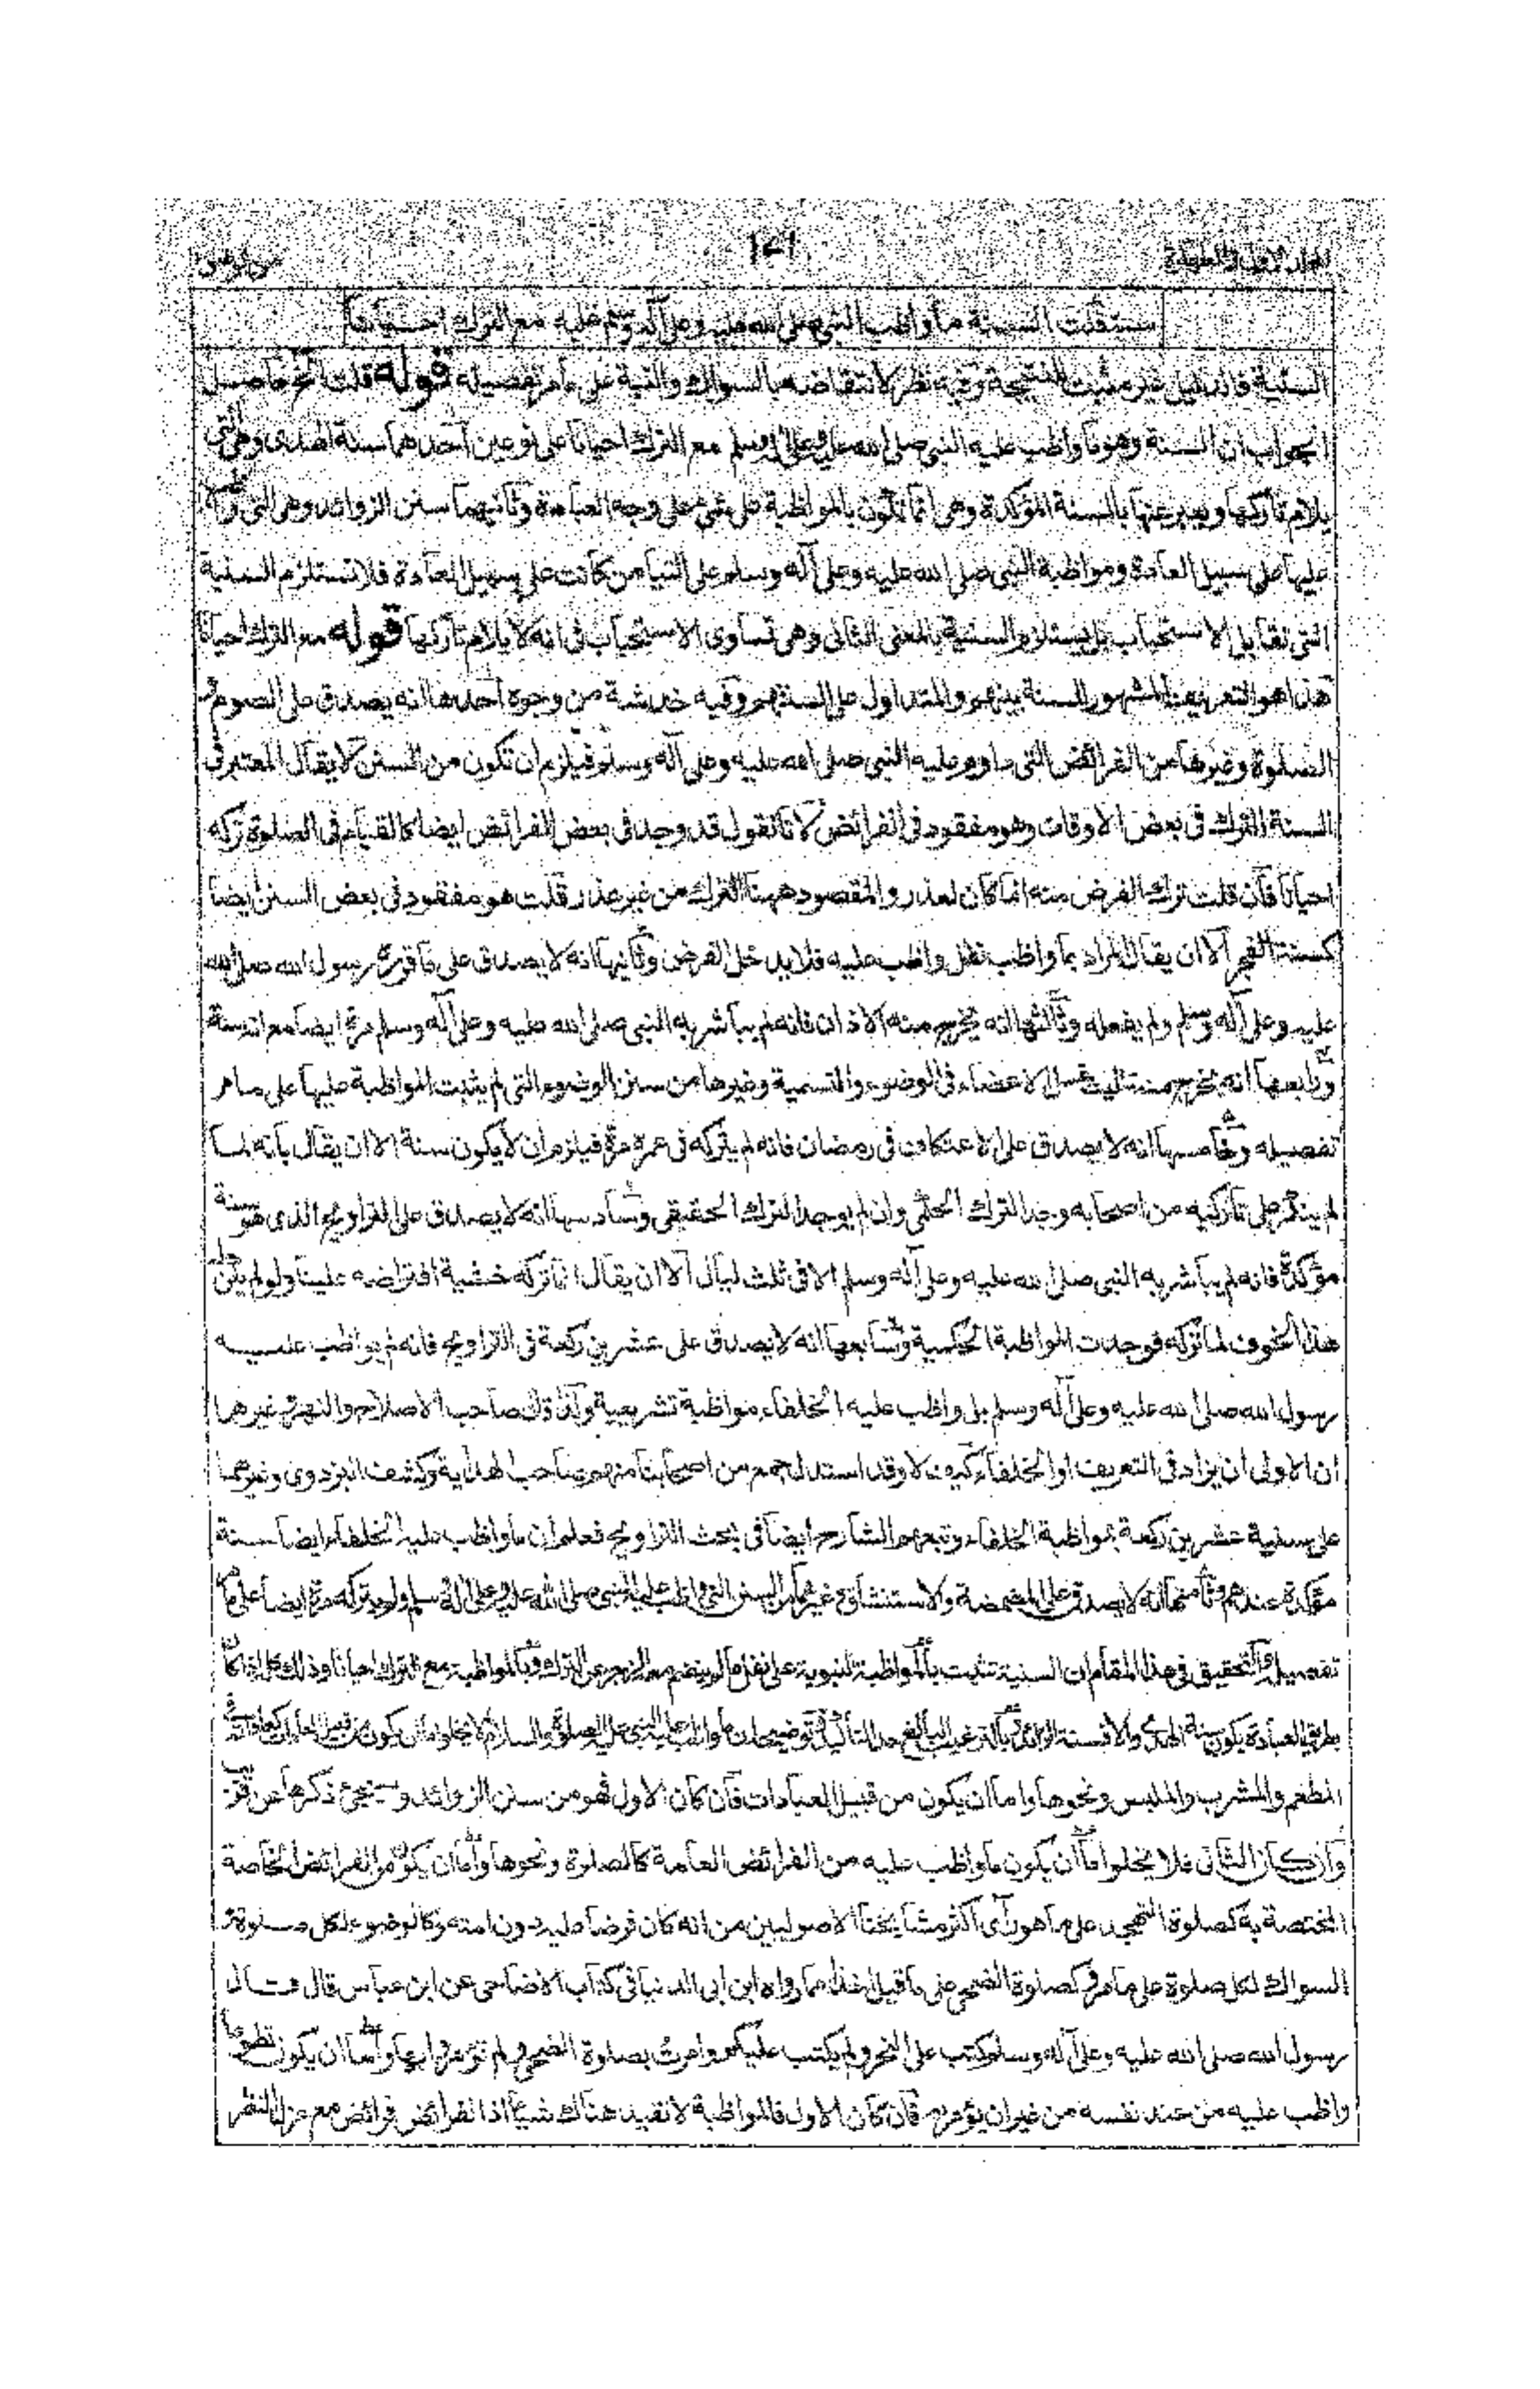 ١٤١
قلت السنية ما واظب النبي صلى الله عليه وعلى آله وسلم عليه مع الترك احيانا
السنية فان دليل غير مثبت وفيه نظر لانتقاضه بالسواك والنية على ما مر تفصيله قوله قلت الخ حاصل
الجواب ان السنة وهو ما واظب عليه النبي صلى الله عليه وعلى آله وسلم مع الترك احيانا على نوعين احدهما سنة الهدى وهي التي
يلام تاركها ويعبر عنها بالسنة المؤكدة وهي انما تكون بالمواظبة على شئ على وجه العبادة وثانيهما سنن الزوائد وهي التي
عليها على سبيل العادة ومواظبة النبي صلى الله عليه وعلى آله وسلم على التيامن كانت على سبيل العادة فلا تستلزم السنية
التي تقابل الاستحباب بل يستلزم السنية بالمعنى الثاني وهي تساوى الاستحباب فى انه لا يلام تاركها قوله مع الترك احيانا
هذا هو التعريف المشهور للسنة بينهم والمتداول على السنتهم وفيه خدشة من وجوه احدها انه يصدق على الصوم و
الصلوة وغيرها من الفرائض التي داوم عليه النبي صلى الله عليه وعلى آله وسلم فيلزم ان تكون من السنن لا يقال المعتبر فى
السنة الترك فى بعض الاوقات وهو مفقود فى الفرائض لانا نقول قد وجد فى بعض الفرائض ايضا كالقيام فى الصلوة تركه
احيانا فان قلت ترك الفرض منه انما كان لعذر والمقصود ههنا الترك من غير عذر قلت هو مفقود فى بعض السنن ايضا
كسنة الفجر الا ان يقال المراد بما واظب نفل واظب عليه فلا يدخل الفرض وثانيها انه لا يصدق على ما قرره رسول الله صلى الله
عليه وعلى آله وسلم ولم يفعله وثالثها انه يخرج منه الاذان فانه لم يباشر به النبي صلى الله عليه وعلى آله وسلم مرة ايضا مع انه سنة
ورابعها انه يخرج منه تثليث غسل الاعضاء فى الوضوء والتسمية وغيرها من سنن الوضوء التي لم يثبت المواظبة عليها على ما مر
تفصيله وخامسها انه لا يصدق على الاعتكاف فى رمضان فانه لم يتركه فى عمره مرة فيلزم ان لا يكون سنة الا ان يقال بانه لما
لم ينكر على تاركيه من اصحابه وجد الترك الحكمي وان لم يوجد الترك الحقيقى وسادسها انه لا يصدق على التراويح الذى هو سنة
مؤكدة فانه لم يباشر به النبي صلى الله عليه وعلى آله وسلم الا فى ثلث ليال الا ان يقال انما تركه خشية افتراضه علينا ولو لم يكن
هذا الخوف لما تركه فوجدت المواظبة الحكمية وسابعها انه لا يصدق على عشرين ركعة فى التراويح فانه لم يواظب عليه
رسول الله صلى الله عليه وعلى آله وسلم بل واظب عليه الخلفاء مواظبة تشريعية ولذا قال صاحب الاصلاح والنهر وغيرهما
ان الاولى ان يزاد فى التعريف او الخلفاء كيف لا وقد استدل جمع من اصحابنا منهم صاحب الهداية وكشف البزدوى وغيرهما
على سنية عشرين ركعة بمواظبة الخلفاء وتبعهم الشارح ايضا فى بحث التراويح فعلم ان ما واظب عليه الخلفاء ايضا سنة
مؤكدة عندهم وثامنها انه لا يصدق على المضمضة والاستنشاق وغيرهما من السنن التي واظب عليه النبي صلى الله عليه وعلى آله وسلم ولم يتركه مرة ايضا على ما مر
تفصيله والتحقيق فى هذا المقام ان السنية تثبت بالمواظبة النبوية على نفل ما لم ينضم مع الزجر عن الترك وبالمواظبة مع الترك احيانا وذلك كله اذا كان
بطريق العبادة يكون سنة الهدى والا فسنة الزوائد وبالترغيب البالغ حد التأكيد توضيحه ان ما واظب عليه النبي عليه الصلوة والسلام لا يخلو اما ان يكون من قبيل العادات كعادته فى
المطعم والمشرب والملبس ونحوها واما ان يكون من قبيل العبادات فان كان الاول فهو من سنن الزوائد وسيجئ ذكرها عن قريب
وان كان الثانى فلا يخلوا اما ان يكون ما واظب عليه من الفرائض العامة كالصلوة ونحوها واما ان يكون من الفرائض الخاصة
المختصة به كصلوة التهجد على ما هو رأى اكثر مشايخنا الاصوليين من انه كان فرضا عليه دون امته وكالوضوء لكل صلوة و
السواك لكل صلوة على ما مر وكصلوة الضحى على ما قيل اخذا مما رواه ابن ابى الدنيا فى كتاب الاضاحى عن ابن عباس قال قال
رسول الله صلى الله عليه وعلى آله وسلم كتب على النحر ولم يكتب عليكم وامرت بصلوة الضحى ولم تؤمروا بها واما ان يكون تطوعا
واظب عليه من عند نفسه من غير ان يؤمر به فان كان الاول فالمواظبة لا تفيد هناك شيئا اذا الفرائض فرائض مع عزل النظر